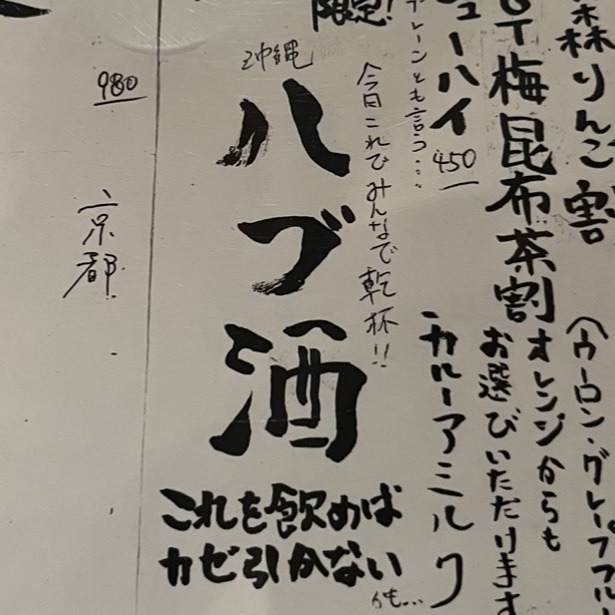 森りんご割
梅昆布茶割
(ウーロン・グレープフル
オレンジからも
お選びいただけます
ューハイ
450
トレーンとも言う…
カルーアミルク
限定!
今日これでみんなで乾杯!!
沖縄
ハブ酒
これを飲めば
カゼ引かない
かも…
980
京都